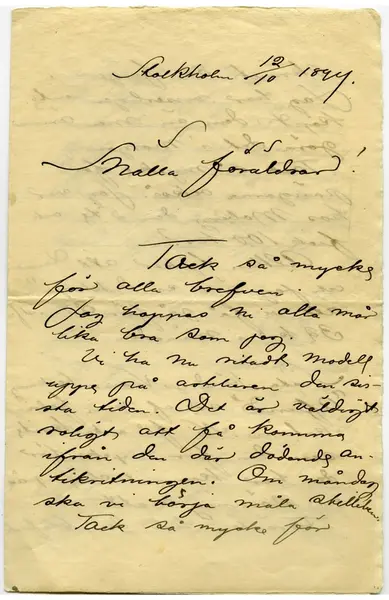 Stockholm 12/10 1897.
Snälla föräldrar!
Tack så mycke
för alla brefven.
Jag hoppas ni alla mår
lika bra som jag.
Vi ha nu ritadt modell
uppe på ateliern den sis-
sta tiden. Det är väldigt
roligt att få komma
ifrån den där dödande an-
tikritningen. Om måndag
ska vi börja måla
Tack så mycke för